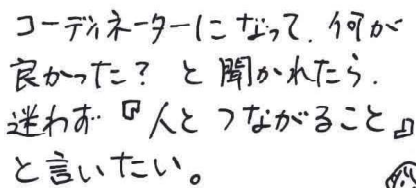 コーディネーターになって、何が
良かった？と聞かれたら、
迷わず『人とつながること』
と言いたい。